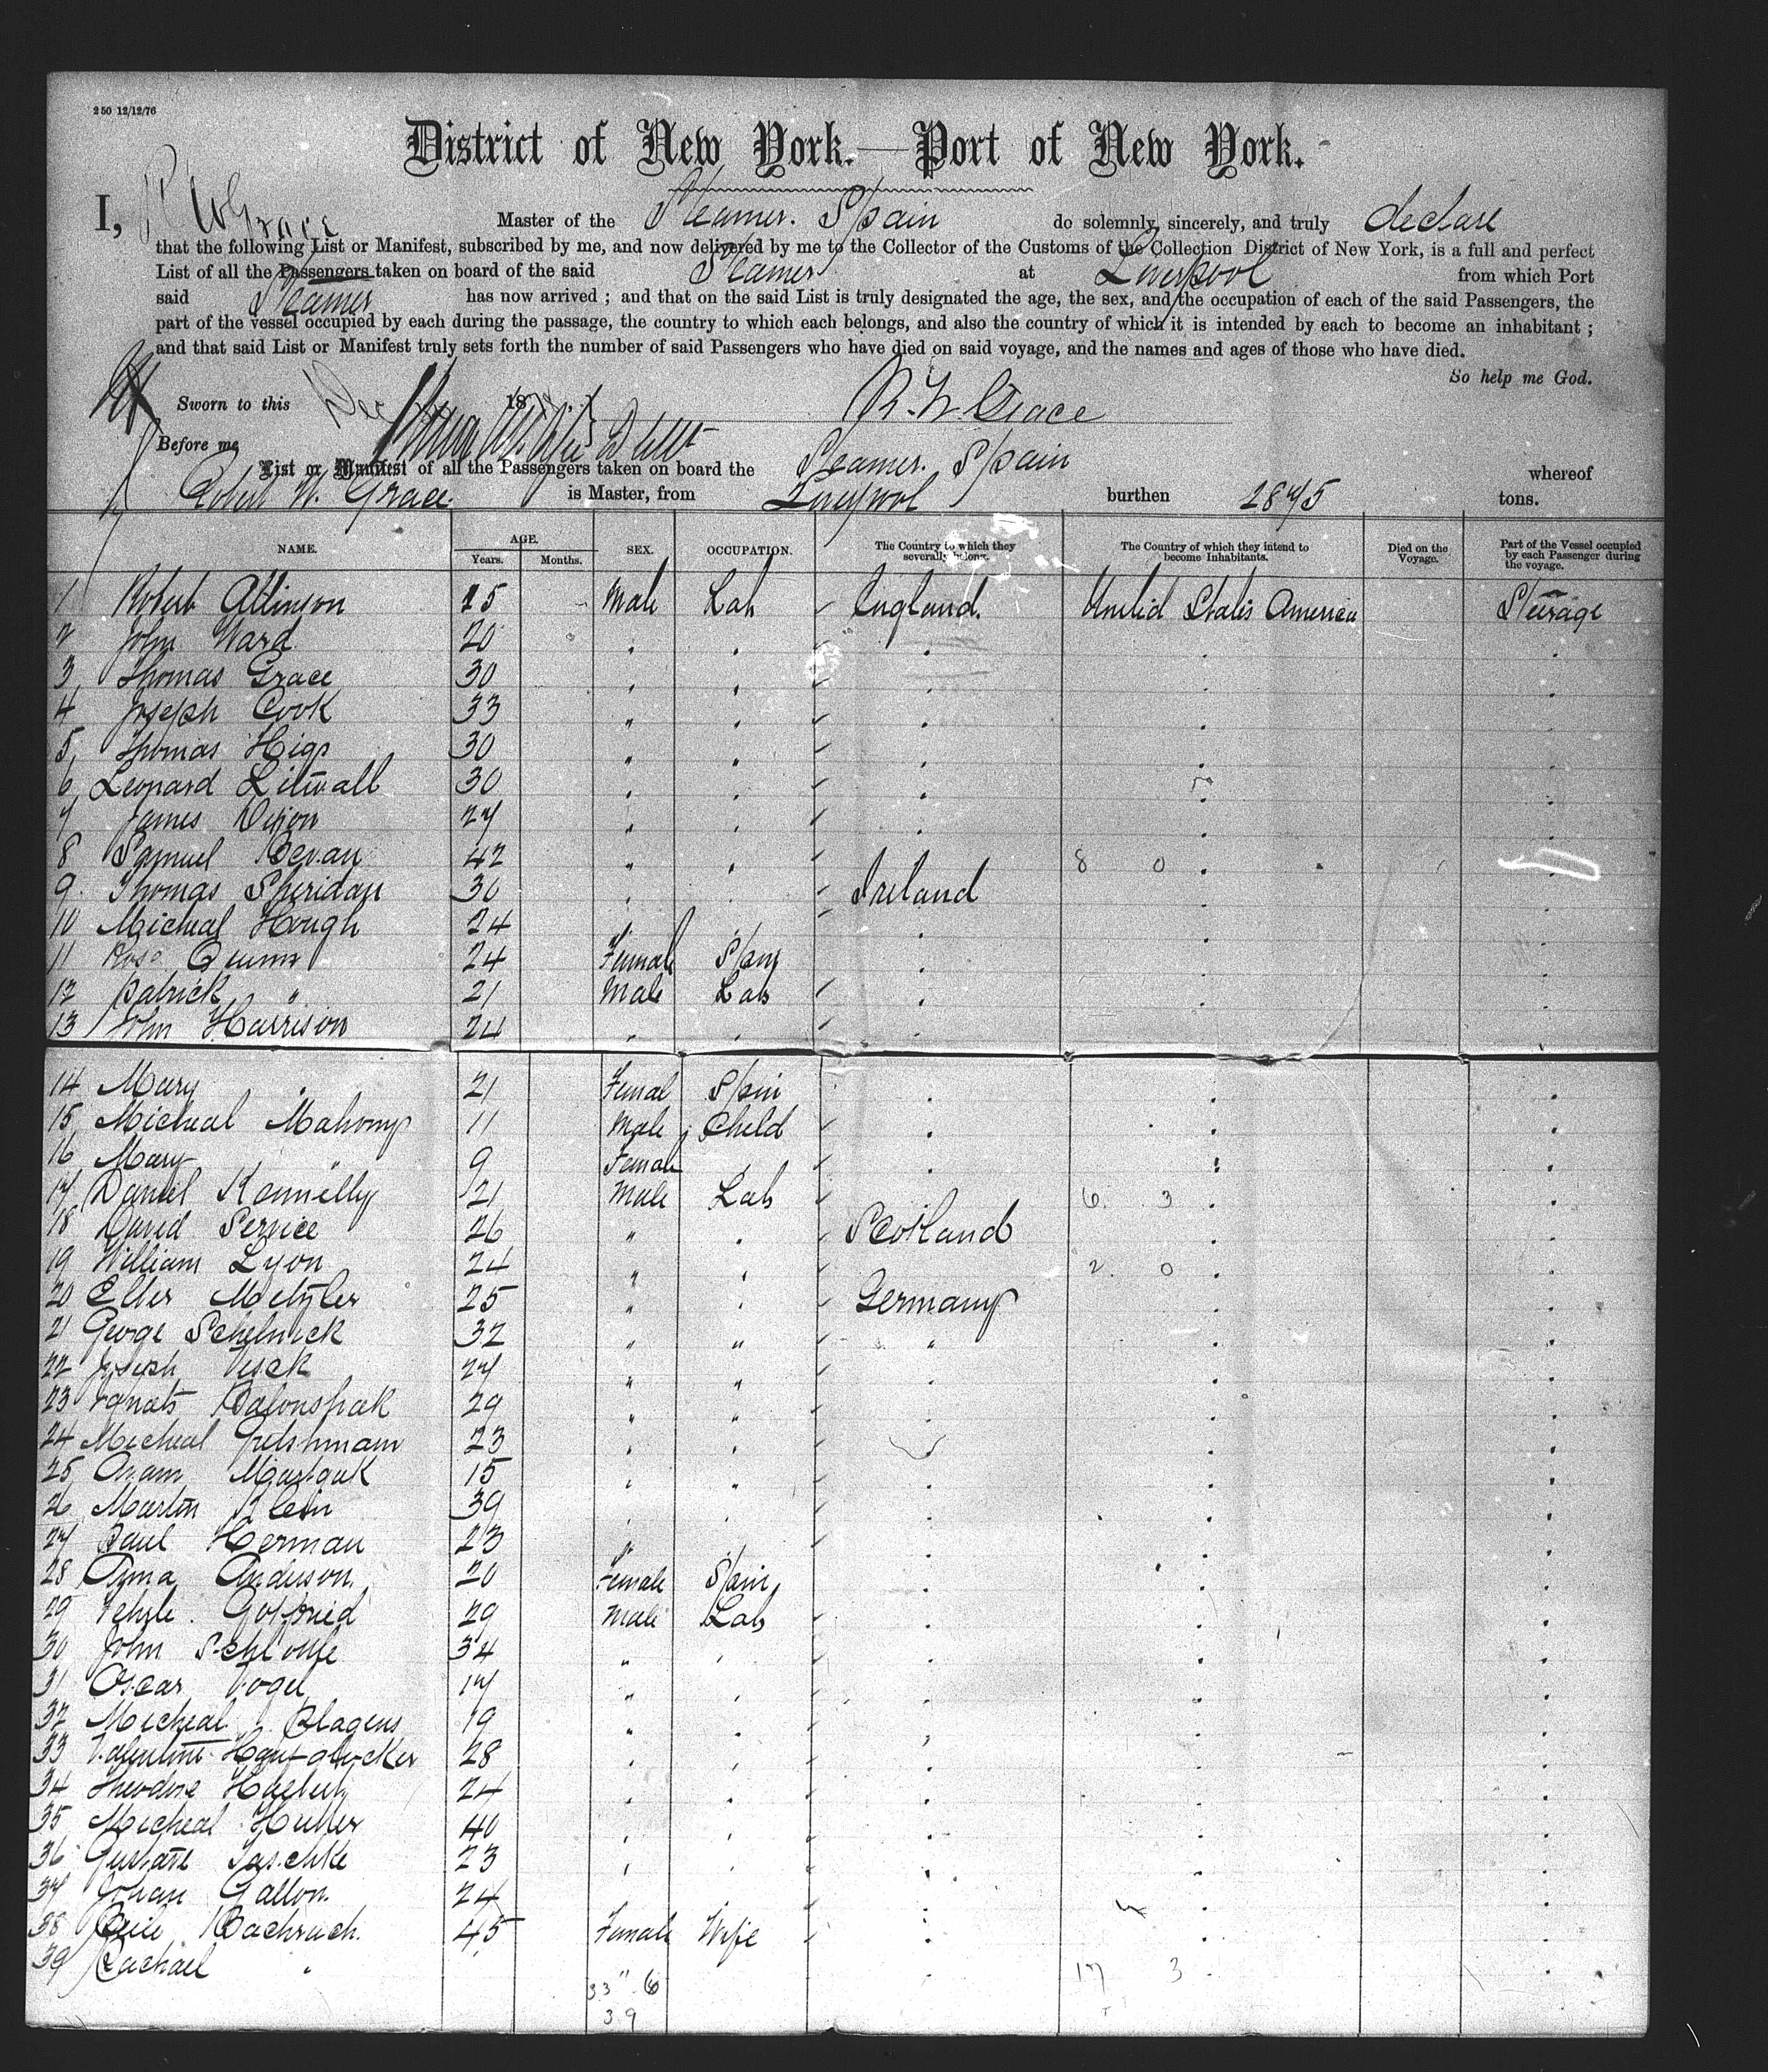 250 12/12/76
District of New York.—Port of New York.
I, R W Grace Master of the Steamer. Spain do solemnly, sincerely, and truly declare
that the following List or Manifest, subscribed by me, and now delivered by me to the Collector of the Customs of the Collection District of New York, is a full and perfect
List of all the Passengers taken on board of the said Steamer at Liverpool from which Port
said Steamer has now arrived ; and that on the said List is truly designated the age, the sex, and the occupation of each of the said Passengers, the
part of the vessel occupied by each during the passage, the country to which each belongs, and also the country of which it is intended by each to become an inhabitant ;
and that said List or Manifest truly sets forth the number of said Passengers who have died on said voyage, and the names and ages of those who have died.
So help me God.
Sworn to this Dec 187 R. W. Grace
Before me
List or Manifest of all the Passengers taken on board the Steamer. Spain whereof
Robert W. Grace is Master, from Liverpool burthen tons.
NAME. AGE. SEX. OCCUPATION. The Country to which they severally belong. The Country of which they intend to become Inhabitants. Died on the Voyage. Part of the Vessel occupied by each Passenger during the voyage.
Years. Months.
1 Robert Attinson 25 Male Lab England. United States America Steerage
2 John Ward 20
3 Thomas Grace 30
4 Joseph Cook 33 "
5 Thomas Higs 30 " "
6 Leonard Litwall 30
7 James Dixon 27 "
8 Samuel Bevan 42 " 8 0
9 Thomas Sheridan 30 Ireland
10 Micheal Hough 24 "
11 Rose Quinn 24 Female Spin
12 Patrick " 21 Male Lab
13 John Harrison 24 "
14 Mary " 21 Femal Spin
15 Micheal Mahony 11 Male Child
16 Mary " 9 Female
17 Daniel Kennelly 21 Male Lab 6 3
18 David Service 26 " Scotland
19 William Lyon 24 " 2 0
20 Metzler 25 " Germany
21 George Schelnick 32 " " "
22 Joseph 27 " "
23 Ignats 29 " "
24 Micheal 23
25 15
26 Martin Klein 39
27 Paul Herman 23 "
28 Anna Anderson. 20 Female Spin
29 Gotfried 29 Male Lab
30 John 34 "
31 Oscar Vogel 17 "
32 Micheal Blagens 19 "
33 Valentine 28
34 Theodore 24
35 Micheal Huller 40
36 Gustave Taschke 23
37 Johan Gallon. 24
38 Bachrach. 45 Female Wife
39 Rachael " 17 3
33 " 6
39